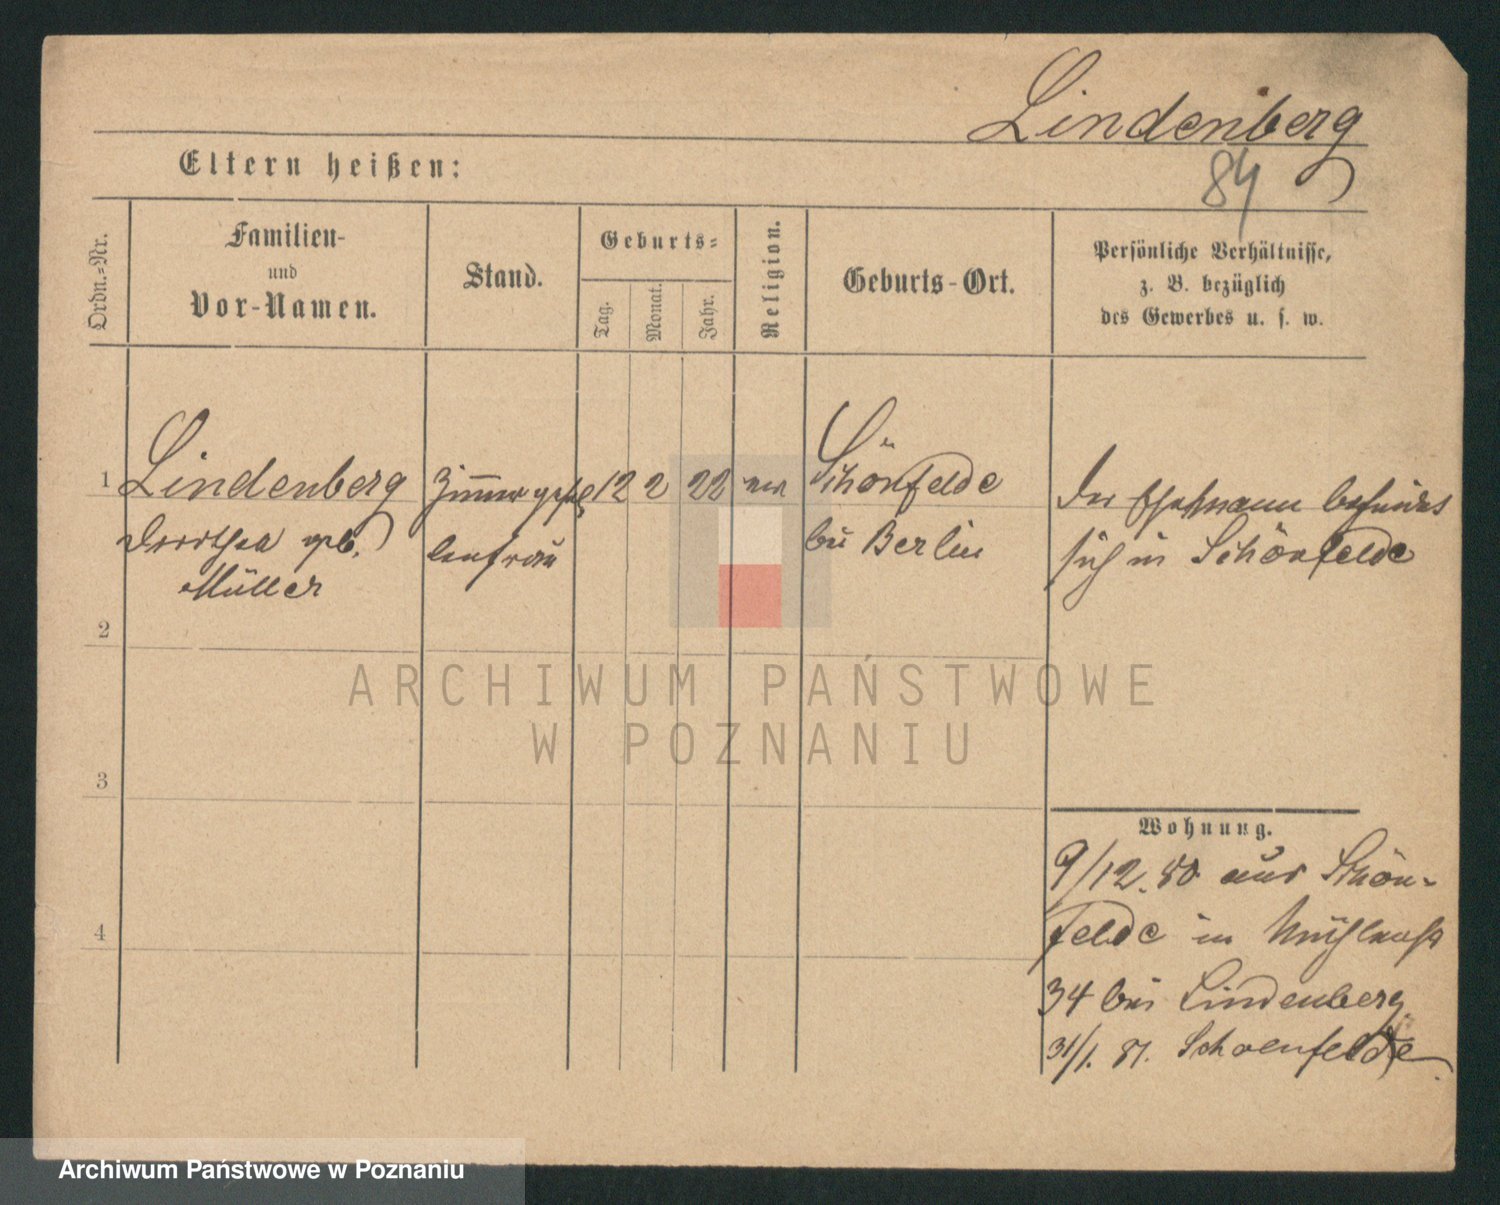 Lindenberg
84
Eltern heißen:
Ordn.-Nr.
Familien-
und
Vor-Namen.
Stand.
Geburts-
Tag.
Monat.
Jahr.
Religion.
Geburts-Ort.
Persönliche Verhältnisse,
z. B. bezüglich
des Gewerbes u. s. w.
1
Lindenberg
Dorothea geb.
Müller
Zimmergesel
lenfrau
12
2
22
ev
Schönfelde
bei Berlin
Der Ehemann befindet
sich in Schönfelde
2
3
4
Wohnung.
9/12. 80 aus Schön-
felde in
34 bei Lindenberg
31/1. 81. Schoenfelde
ARCHIWUM PAŃSTWOWE
W POZNANIU
Archiwum Państwowe w Poznaniu